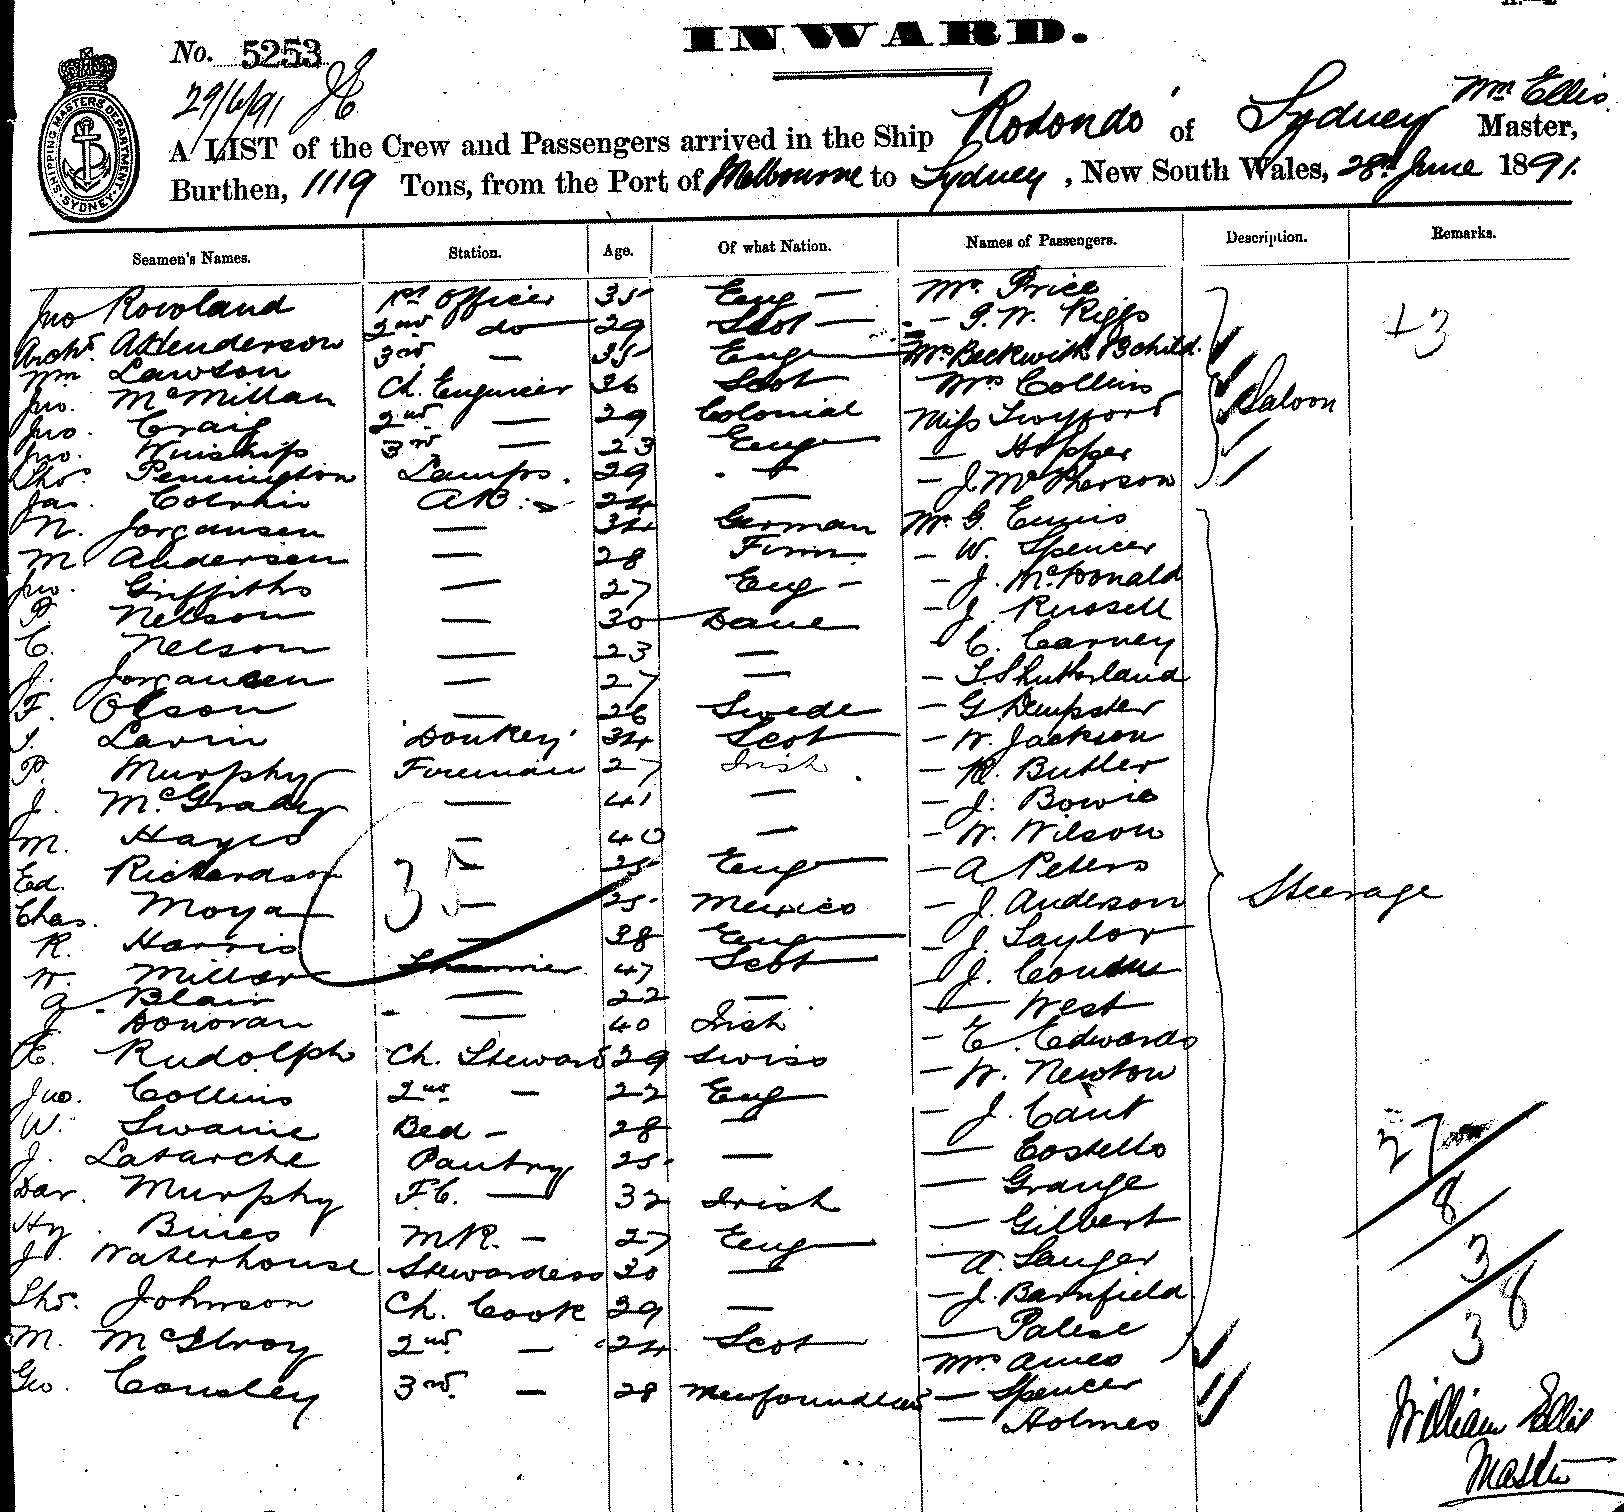 INWARD.
No. 5253
29/6/91
Wm Ellis
A LIST of the Crew and Passengers arrived in the Ship "Rodondo" of Sydney Master,
Burthen, 1119 Tons, from the Port of Melbourne to Sydney, New South Wales, 28th June 1891.
SHIPPING MASTERS DEPARTMENT SYDNEY
Seamen's Names. Station. Age. Of what Nation. Names of Passengers. Description. Remarks.
Jno Rowland 1st Officer 35 Eng — Mr. Price
Archd. A Henderson 2nd do 29 Scot — — G. W. Riggs +3
Wm Lawson 3rd — 35 Eng Mrs Beckwith & 3 child.
Jno. McMillan Ch. Engineer 36 Scot Mrs Collins Saloon
Jno. Craig 2nd — 29 Colonial Miss Twyford
Jno. Winship 3rd — 23 Eng — Hopper
Thos. Pennington Lamps. 29 — — J. McPherson
Jas. AB. 24 —
N. Jorgansen — 34 German Mr. G. Ennis
M Andersen — 28 Finn — W. Spencer
Jno. Griffiths — 27 Eng — — J. McDonald
P. Nelson — 30 Dane — J. Russell
C. Nelson — 23 — C. Carney
J. Jorgansen — 27 — — T. Shutherland
F. Olson — 26 Swede — G Dempster
Lavin Donkey 34 Scot — W. Jackson
P. Murphy Fireman 27 Irish — R. Butler
J. McGrady — 41 — — J. Bowie
M. Hayes — 40 — — W. Wilson
Ed. Richardson — 25 Eng — A Peters
35
Chas. Moya — 25 Mexico — J. Anderson Steerage
R. Harris — 38 Eng — J. Taylor
W. Millar 47 Scot — J.
A. Blair — 22 — — West
J Donovan — 40 Irish — E. Edwards
E. Rudolph Ch. Steward 29 Swiss — W. Newton
Jno. Collins 2nd — 22 Eng — J. Cant
W. Swaine Bed — 28 — — Costello 27
J. Latarche Pantry 25 — — Grange
Dan. Murphy F.C. — 32 Irish — Gilbert 8
Hy. Bines M.R. — 27 Eng — A. Sanger 3
J. Waterhouse Stewardess 30 — — J. Barnfield 38
Thos. Johnson Ch. Cook 29 — — Palese
M. McIlroy 2nd — 24 Scot Mrs Ames 3
Geo. Cousley 3rd — 28 Newfoundland — Spencer
— Holmes
William Ellis
Master